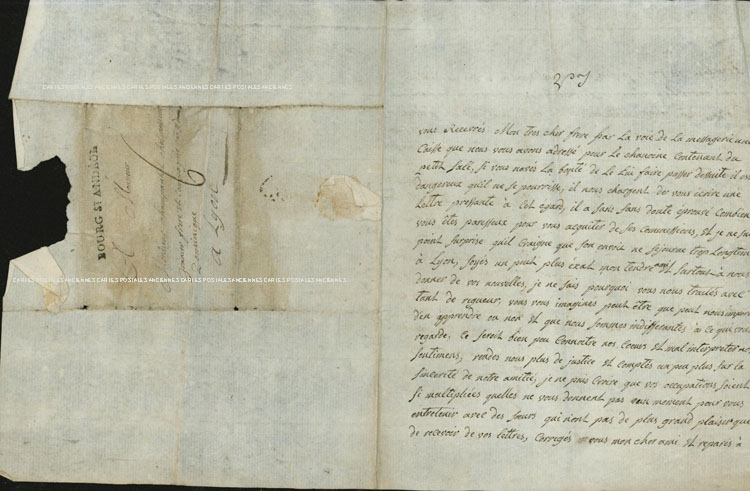 CARTES POSTALES ANCIENNES CARTES POSTALES ANCIENNES CARTES POSTALES ANCIENNES
BOURG ST ANDEOL
A Monsieur
6
Dominique
a Lyon
CARTES POSTALES ANCIENNES CARTES POSTALES ANCIENNES CARTES POSTALES ANCIENNES CARTES POSTALES ANCIENNES
vous Recevrés Mon tres cher frere par La voie de La messagerie une
Caisse que nous vous avons adressé pour Le chanoine Contenant du
petit Salé, Si vous navés La bonté de Le Lui faire passer dessuite il est
dangereux qu'il ne se pourrisse, il nous chargent de vous écrire une
Lettre pressante à cet egard, il a Sans doute eprouvé Combien
vous êtes paresseux pour vous acquiter de ses Commissions, et je ne suis
point Surprise qu'il Craigne que Son envoit ne Sejourne trop Longtems
à Lyon, soyés un peut plus exat mon tendre ami et Surtout à nous
donner de vos nouvelles, je ne sais pourquoi vous nous traités avec
tant de rigueur, vous vous imaginés peut etre que peut nous importe
d'en apprendre ou non et que nous sommes indifferantes à ce qui vous
regarde, Ce seroit bien peu Connoitre nos Coeurs et mal interpreter nos
Sentimens, rendés nous plus de justice et Comptés un peu plus Sur la
Sincerité de notre amitié, je ne puis Croire que vos occupations soient
Si multipliées quelles ne vous donnent pas un moment pour vous
entretenir avec des Sœurs qui n'ont pas de plus grand plaisir que
de recevoir de vos lettres, Corrigés vous mon cher ami et reparés à